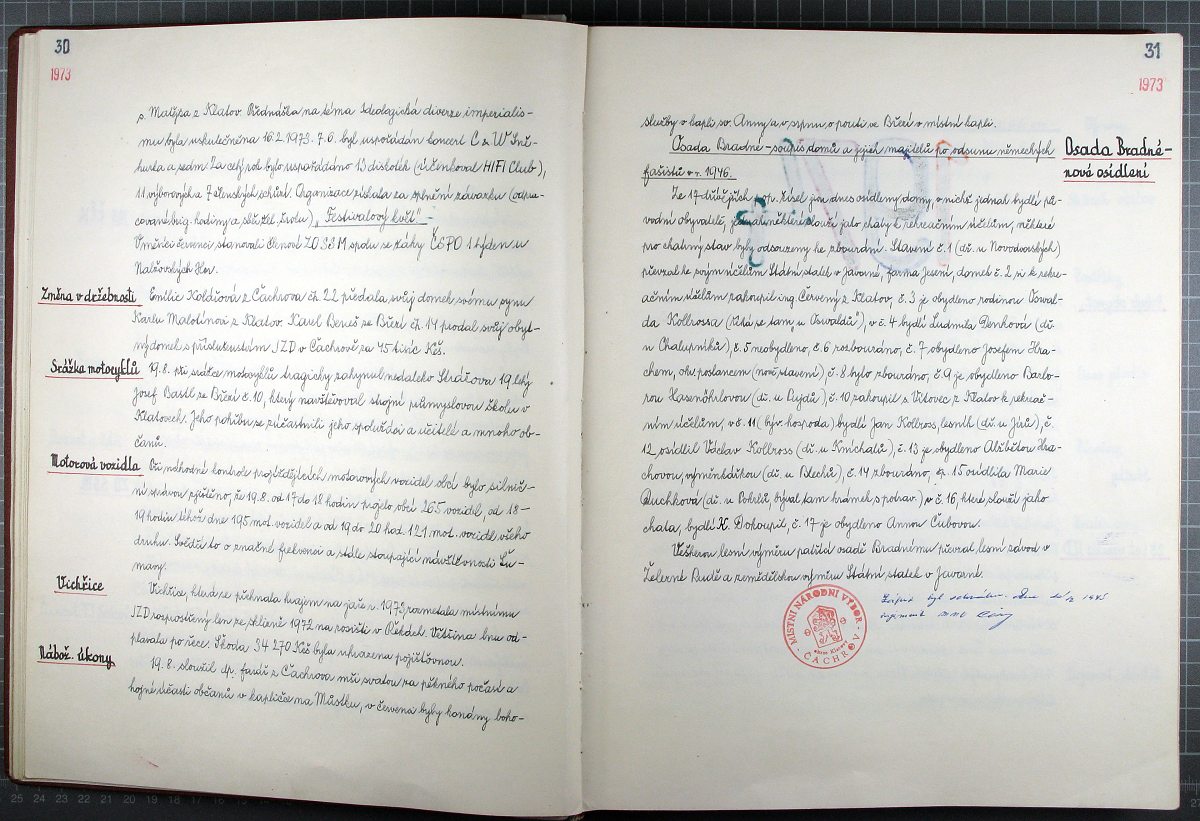 30
1973
s. Matýsa z Klatov. Přednáška na téma Ideologická diverze imperialis-
mu byla uskutečněna 16.2.1973. 7.6. byl uspořádán koncert C & W
a sedm. Za celý rok bylo uspořádáno 13 diskoték (účinkoval HIFI Club),
11 výborových a 7 členských schůzí. Organizace získala za splnění závazku (odpra-
cované brig. hodiny a sběr žel. šrotu) „Festivalový květ".
V měsíci červenci stanovali členové ZO SSM spolu se žáky ČSPO 1 týden u
Nalžovských Hor.
Změna v držebnosti
Emilie Koldinová z Čachrova čh. 22 předala svůj domek svému synu
Karlu Malotínovi z Klatov. Karel Beneš ze Bížří čh. 14 prodal svůj obyt-
ný domek s příslušenstvím JZD v Čachrově za 45 tisíc Kčs.
Srážka motocyklů
19.8. při srážce motocyklů tragicky zahynul nedaleko Stráčova 19 letý
Josef Bastl ze č. 10, který navštěvoval strojní průmyslovou školu v
Klatovech. Jeho pohřbu se zúčastnili jeho spolužáci a učitelé a mnoho ob-
čanů.
Motorová vozidla
Při náhodné kontrole projíždějících motorových vozidel obcí bylo silnič-
ní správou zjištěno, že 19.8. od 17 do 18 hodin projelo obcí 265 vozidel, od 18-
19 hodin téhož dne 195 mot. vozidel a od 19 do 20 hod. 121 mot. vozidel všeho
druhu. Svědčí to o značné frekvenci a stále stoupající návštěvnosti Šu-
mavy.
Vichřice
Vichřice, která se přehnala krajem na jaře r. 1973, rozmetala místnímu
JZD rozprostřený len ze sklizně 1972 na rosišti v Řekách. Většina lnu od-
plavala po řece. Škoda 34 270 Kčs byla uhrazena pojišťovnou.
Nábož. úkony
19.8. sloužil dp. farář z Čachrova mši svatou za pěkného počasí a
hojné účasti občanů v kapličce na Můstku, v červenci byly konány boho-
31
1973
služby v kapli sv. Anny a v srpnu o pouti ve v místní kapli.
Osada Bradné - soupis domů a jejich majitelů po odsunu německých
fašistů v r. 1946.
Osada Bradné-
nová osídlení
Ze 17 dřívějších pop. čísel jsou dnes osídleny domy, o nichž jednal bydlí pů-
vodní obyvatelé, jednak některé slouží jako chaty k rekreačním účelům, některé
pro chatrný stav byly odsouzeny ke zbourání. Stavení č. 1 (dř. u Novodvorských)
převzal ke svým účelům Státní statek v Javorné, farma Jesení, domek č. 2 si k rekre-
ačním účelům zakoupil ing. Červený z Klatov, č. 3 je obydleno rodinou Oswal-
da Kollrossa (říká se tam „u Oswaldů"), v č. 4 bydlí Ludmila Denková (dř.
u Chalupníků), č. 5 neobydleno, č. 6 rozbouráno, č. 7 obydleno Josefem Hra-
chem, okr. poslancem (nové stavení), č. 8 bylo zbouráno, č. 9 je obydleno Barbo-
rou Hasenöhrlovou (dř. u Lujdů), č. 10 zakoupil s. Vítovec z Klatov k rekreač-
ním účelům, v č. 11 (býv. hospoda) bydlí Jan Kollross lesník (dř. u Jírů), č.
12 osídlil Václav Kollross (dř. u Kníchalů), č. 13 je obydleno Alžbětou Hra-
chovou, výměnkářkou (dř. u Blechů), č. 14 zbouráno, čp. 15 osídlila Marie
Duchková (dř. u Pokrlů, býval tam krámek s potrav.), v č. 16, které slouží jako
chata, bydlí K. Dokoupil, č. 17 je obydleno Annou Čubovou.
Veškerou lesní výměru patřící osadě Bradnému převzal lesní závod v
Železné Rudě a zemědělskou výměru Státní statek v Javorné.
MÍSTNÍ NÁRODNÍ VÝBOR
ČACHROV
okres Klatovy
Zápis byl schválen dne
MNV